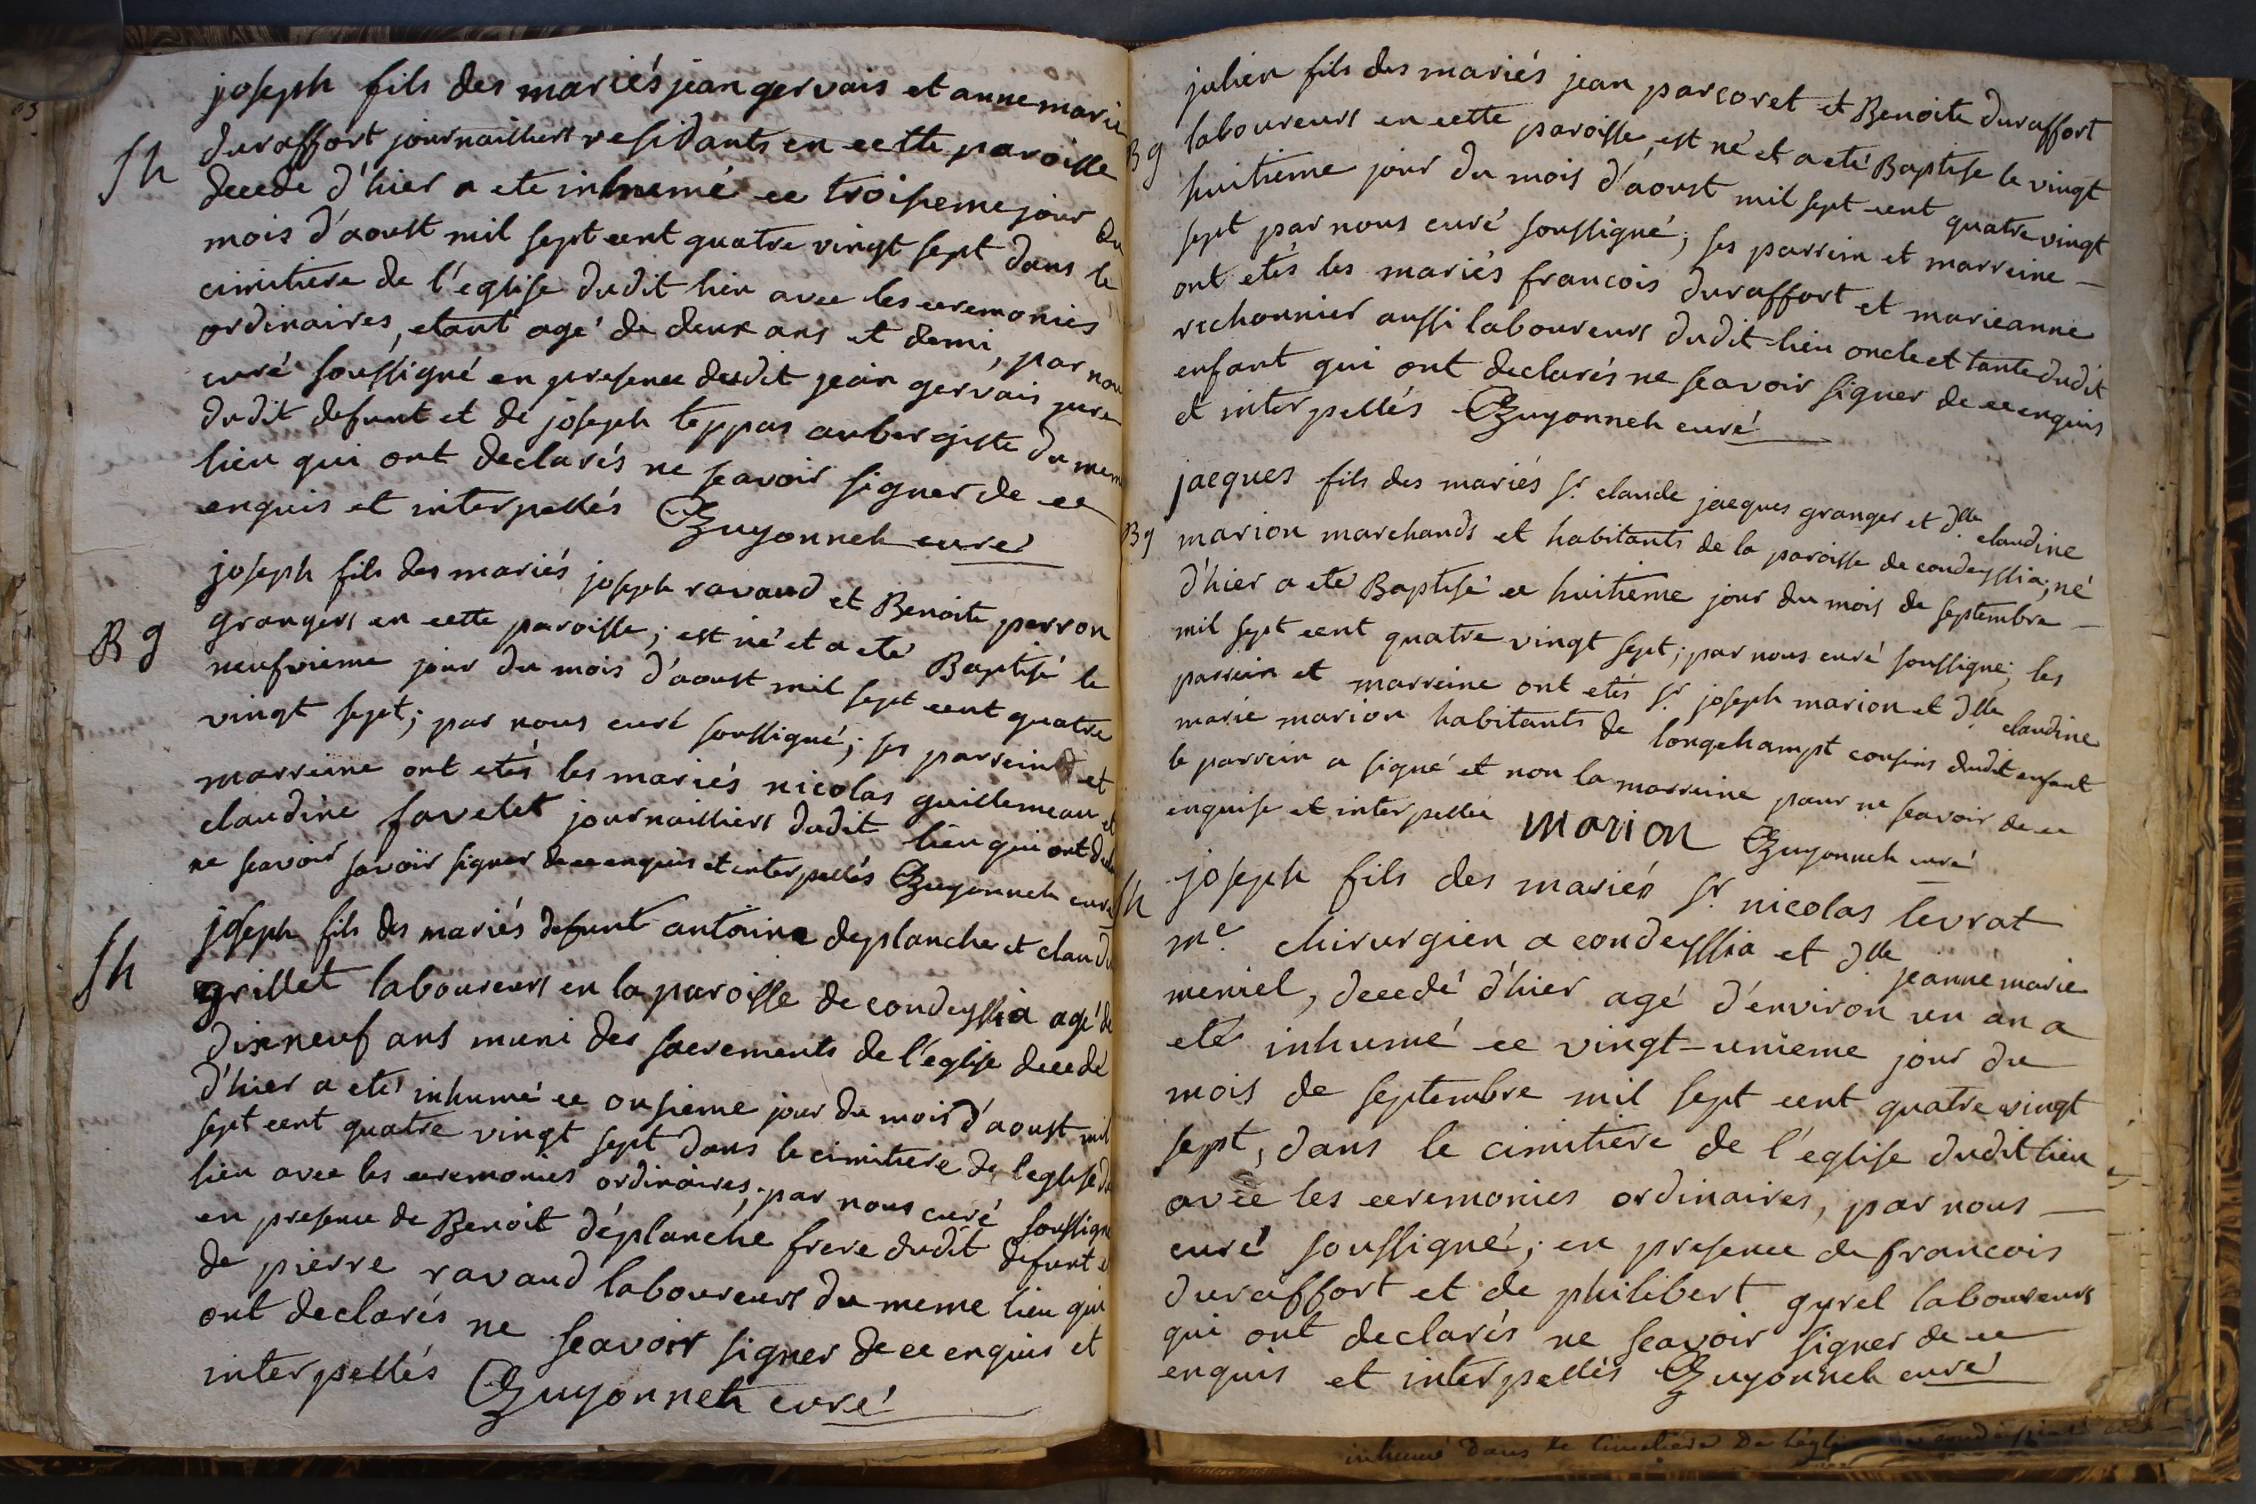 joseph fils des mariés jean gervais et anne marie
Sh duraffort journailliers residants en cette paroisse
decede d'hier a ete inhumé ce troisieme jour du
mois d'aoust mil sept cent quatre vingt sept dans le
cimitiere de l'église dudit lieu avec les ceremonies
ordinaires, etant agé de deux ans et demi, par nous
curé soussigné en presence dudit jean gervais pere
dudit defunt et de joseph teppas aubergiste du meme
lieu qui ont declarés ne scavoir signer de ce
enquis et interpellés Guyonneh curé
joseph fils des mariés joseph ravaud et Benoite perron
B g grangers en cette paroisse; est né et a eté Baptisé le
neufvieme jour du mois d'aoust mil sept cent quatre
vingt sept; par nous curé soussigné; ses parrein et
marreine ont etés les mariés nicolas guillemeau et
claudine favelet journailliers dudit lieu qui ont decla
ne scavoir savoir signer de ce enquis et interpellés Guyonneh curé
joseph fils des mariés defunt antoine deplanche et claudi
Sh grillet laboureurs en la paroisse de condeyssia agé de
dixneuf ans muni des sacrements de l'église decedé
d'hier a eté inhumé ce onsieme jour du mois d'aoust mil
sept cent quatre vingt sept dans le cimitiere de l'eglise du
lieu avec les ceremonies ordinaires; par nous curé soussigné
en presence de Benoit déplanche frere dudit defunt et
de pierre ravaud laboureurs du meme lieu qui
ont declarés ne scavoir signer de ce enquis et
interpellés Guyonneh curé
julien fils des mariés jean parcoret et Benoite duraffort
B g laboureurs en cette paroisse, est né et a eté Baptise le vingt
huitieme jour du mois d'aoust mil sept cent quatre vingt
sept par nous curé soussigné; ses parrein et marreine
ont etés les mariés francois duraffort et marieanne
rechonnier aussi laboureurs dudit lieu oncle et tante dudit
enfant qui ont declarés ne scavoir signer de ce enquis
et interpellés Guyonneh curé
jacques fils des mariés Sr. claude jacques granger et dlle claudine
B g marion marchands et habitants de la paroisse de condeyssia; né
d'hier a eté Baptisé ce huitieme jour du mois de septembre
mil sept cent quatre vingt sept; par nous curé soussigné; les
parrein et marreine ont etés Sr. joseph marion et dlle claudine
marie marion habitants de longchampt cousins dudit enfant
le parrein a signé et non la marreine pour ne scavoir de ce
enquise et interpellée marion Guyonneh curé
Sh joseph fils des mariés Sr. nicolas levrat
me. chirurgien a condeyssia et dlle jeanne marie
meniel, decedé d'hier agé d'environ un an a
eté inhumé ce vingt-unieme jour du
mois de septembre mil sept cent quatre vingt
sept, dans le cimitiere de l'église dudit lieu
avec les ceremonies ordinaires, par nous
curé soussigné; en presence de francois
duraffort et de philibert gyrel laboureurs
qui ont declarés ne scavoir signer de ce
enquis et interpellés Guyonneh curé
inhumé dans le Cimetiere De l'église